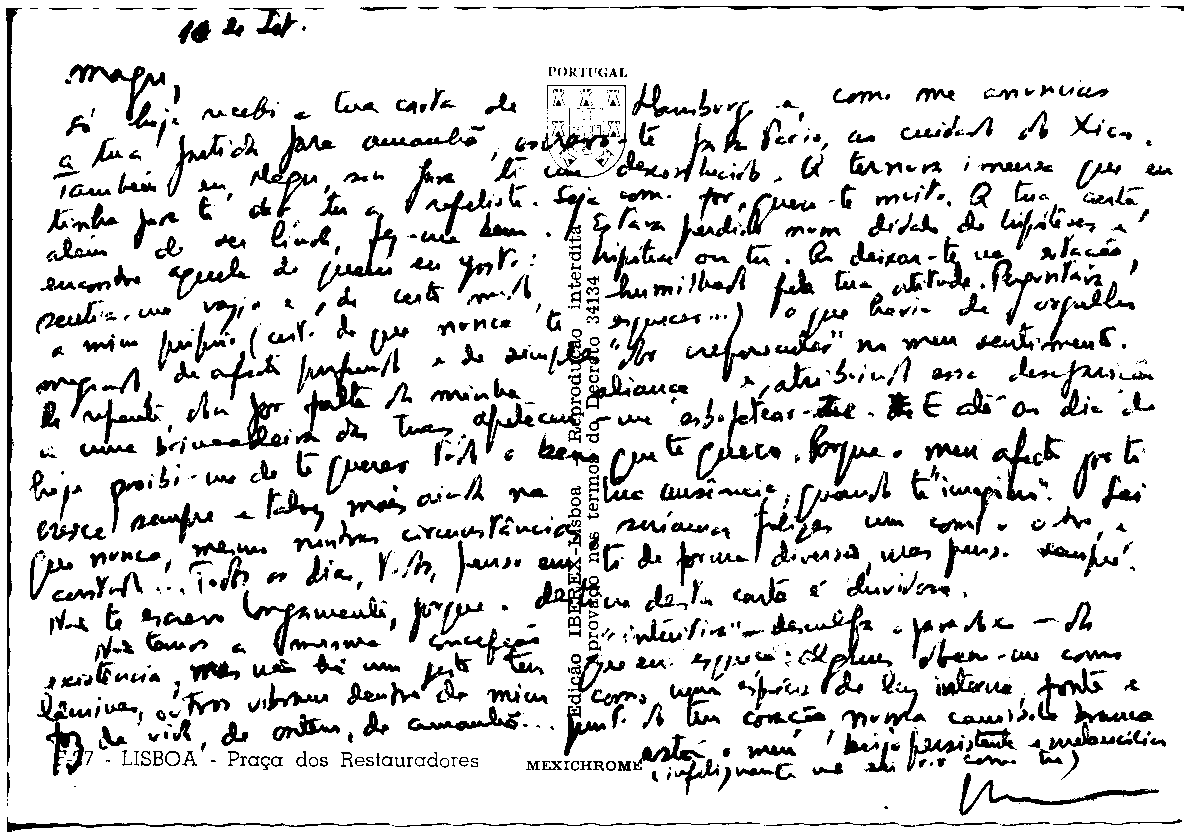 18 de Set.
PORTUGAL
Magu,
só hoje recebi a tua carta de Hamburg e, como me anuncias
a tua partida para amanhã, escrevo-te para Paris, ao cuidado do Xico.
Também eu, Magu, sou para ti um desconhecido. A ternura imensa que eu
tinha para te dar, tu a repeliste. Seja como for, quero-te muito. A tua carta,
além de ser linda, fez-me bem. Estava perdido num dédalo de hipóteses e
encontro aquela de quem eu gosto: hipótese ou tu. Ao deixar-te na estação,
sentia-me vazio e, de certo modo, humilhado pela tua atitude. Perguntava,
a mim próprio (certo de que nunca te esquecas...) o que havia de orgulho
magoado, de afecto profundo e de simples no meu sentimento.
De repente, dei por falta da minha aliança e, atribuindo essa desaparição
a uma brincadeira das tuas, apeteceu-me esbofetear-te. E até ao dia de
hoje proibi-me de te querer todo o bem que te quero. Porque o meu afecto por ti
cresce sempre e talvez mais ainda na tua ausência, quando te "imagino". Sei
que nunca, mesmo noutras circunstâncias, seríamos felizes um com o outro, e
contudo... Todos os dias, todos, penso em ti de forma diversa, mas penso sempre.
Não te escrevo longamente, porque o destino desta carta é duvidoso.
Não temos a mesma concepção "intuitiva" – desculpa o paradoxo – da
existência, mas não há um gesto teu que eu esqueça: alguns doem-me como
lâminas, outros vibram dentro de mim como uma espécie de luz interna, fonte e
foz da vida, de ontem, de amanhã... Junto do teu coração numa camisola branca
está o meu beijo persistente e melancólico
(infelizmente não sei rir como tu)
F-27 - LISBOA - Praça dos Restauradores
MEXICHROME
Edição IBEREX-Lisboa - Reprodução interdita
provação nos termos do Decreto 34134